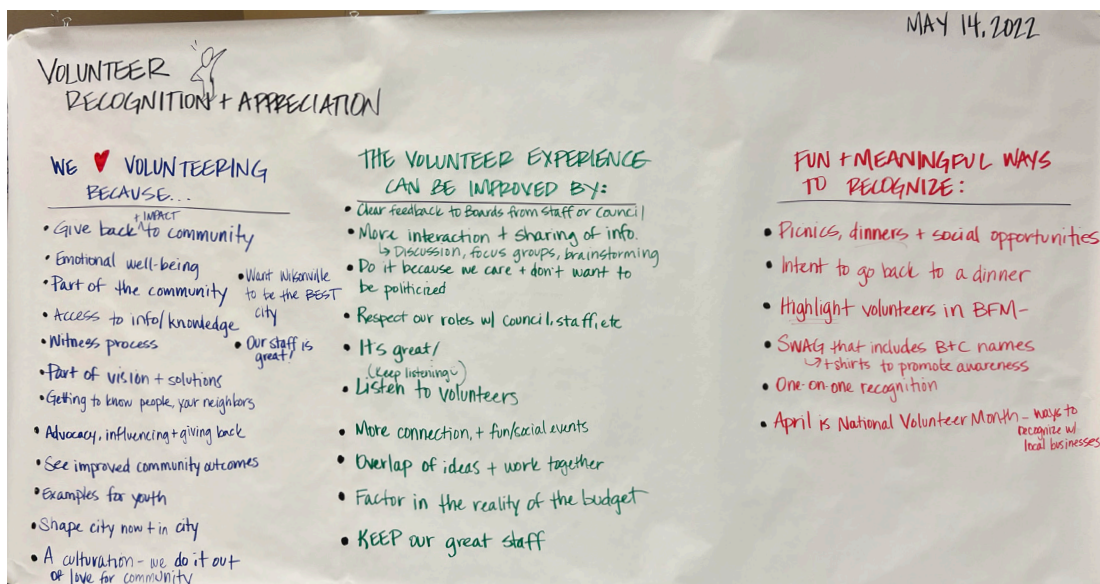 MAY 14, 2022
VOLUNTEER
RECOGNITION + APPRECIATION
WE ♥ VOLUNTEERING
BECAUSE...
+ IMPACT
• Give back ^ to community
• Emotional well-being
• Part of the community
• Access to info/knowledge
• Witness process
• Part of vision + solutions
• Getting to know people, your neighbors
• Advocacy, influencing + giving back
• See improved community outcomes
• Examples for youth
• Shape city now + in city
• A culturation - we do it out
of love for community
• Want Wilsonville
to be the BEST
city
• Our staff is
great!
THE VOLUNTEER EXPERIENCE
CAN BE IMPROVED BY:
• Clear feedback to Boards from staff or Council
• More interaction + sharing of info.
↳ Discussion, focus groups, brainstorming
• Do it because we care + don't want to
be politicized
• Respect our roles w/ council, staff, etc
• It's great!
(Keep listening)
• Listen to volunteers
• More connection, + fun/social events
• Overlap of ideas + work together
• Factor in the reality of the budget
• KEEP our great staff
FUN + MEANINGFUL WAYS
TO RECOGNIZE:
• Picnics, dinners + social opportunities
• Intent to go back to a dinner
• Highlight volunteers in BFM-
• SWAG that includes B+C names
↳ t shirts to promote awareness
• One-on-one recognition
• April is National Volunteer Month - ways to
recognize w/
local businesses